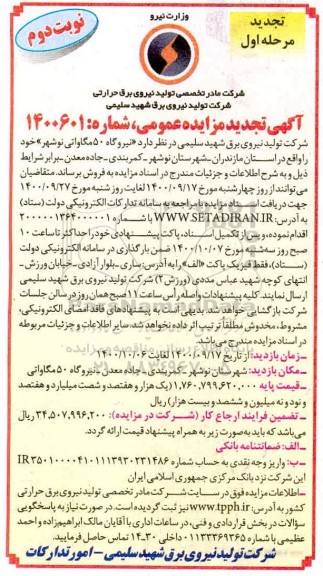 تجدید
مرحله اول
وزارت نیرو
نوبت دوم
شرکت مادر تخصصی تولید نیروی برق حرارتی
شرکت تولید نیروی برق شهید سلیمی
آگهی تجدید مزایده عمومی، شماره: ۱۴۰۰۶۰۱
شرکت تولید نیروی برق شهید سلیمی در نظر دارد «نیروگاه ۵۰ مگاواتی نوشهر» خود
را واقع در استان مازندران_شهرستان نوشهر_کمربندی_جاده معدن_برابر شرایط
ذیل و به شرح اطلاعات و جزئیات مندرج در اسناد مزایده به فروش برساند. متقاضیان
می‌توانند از روز چهارشنبه مورخ ۱۴۰۰/۰۹/۱۷ لغایت روز شنبه مورخ ۱۴۰۰/۰۹/۲۷
جهت دریافت اسناد مزایده با مراجعه به سامانه تدارکات الکترونیکی دولت (ستاد)
به آدرس: WWW.SETADIRAN.IR با شماره
اقدام نموده و پس از تکمیل اسناد، پاکت پیشنهادی خود را حداکثر تا ساعت ۱۰
صبح روز سه‌شنبه مورخ ۱۴۰۰/۱۰/۰۷ ضمن بارگذاری در سامانه الکترونیکی دولت
(ستاد)، فقط فیزیک پاکت «الف» را به آدرس: ساری_بلوار آزادی_خیابان ورزش_
انتهای کوچه شهید عباس مددی (ورزش ۲) شرکت تولید نیروی برق شهید سلیمی
ارسال نمایند. کلیه پیشنهادات واصله رأس ساعت ۱۱ صبح همان روز در سالن جلسات
شرکت بازگشایی خواهد شد. بدیهی است به پیشنهادهای فاقد امضای الکترونیکی،
مشروط، مخدوش مطلقاً ترتیب اثر داده نخواهد شد. سایر اطلاعات و جزئیات مربوطه
در اسناد مزایده مندرج می‌باشد.
_زمان بازدید: از تاریخ ۱۴۰۰/۰۹/۱۷ لغایت ۱۴۰۰/۱۰/۰۶
_مکان بازدید: شهرستان نوشهر_کمربندی_جاده معدن_نیروگاه ۵۰ مگاواتی
_قیمت پایه ۱,۷۶۰,۷۹۹,۶۲۰,۰۰۰ (یک هزار و هفتصد و شصت میلیارد و هفتصد
و نود و نه میلیون و ششصد و بیست هزار) ریال
_تضمین فرایند ارجاع کار (شرکت در مزایده): ۳۴,۵۰۷,۹۹۶,۲۰۰ ریال
می‌باشد که باید به صورت زیر به همراه پیشنهاد قیمت ارائه گردد.
_الف: ضمانتنامه بانکی
_ب: واریز وجه نقدی به حساب شماره
این شرکت نزد بانک مرکزی جمهوری اسلامی ایران
_اطلاعات مزایده فوق در سایت شرکت مادر تخصصی تولید نیروی برق حرارتی
کشور به آدرس: www.tpph.ir نیز ثبت گردیده است. در صورت نیاز به پاسخگویی
سؤالات در بخش قراردادی و فنی، در ساعات اداری با آقایان مالک ابراهیم‌زاده و احمد
عظیمی با شماره ۰۱۱۳۳۳۶۹۳۶۵ داخلی ۱۴۰۳۰ تماس حاصل فرمایید.
شرکت تولید نیروی برق شهید سلیمی - امور تدارکات